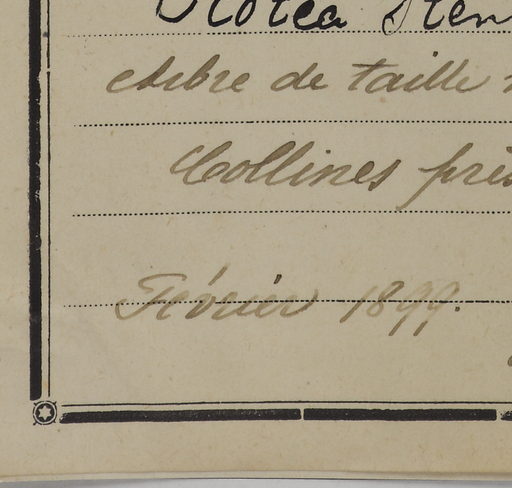 Ocotea
Arbre de taille
Collines près
Février 1899.